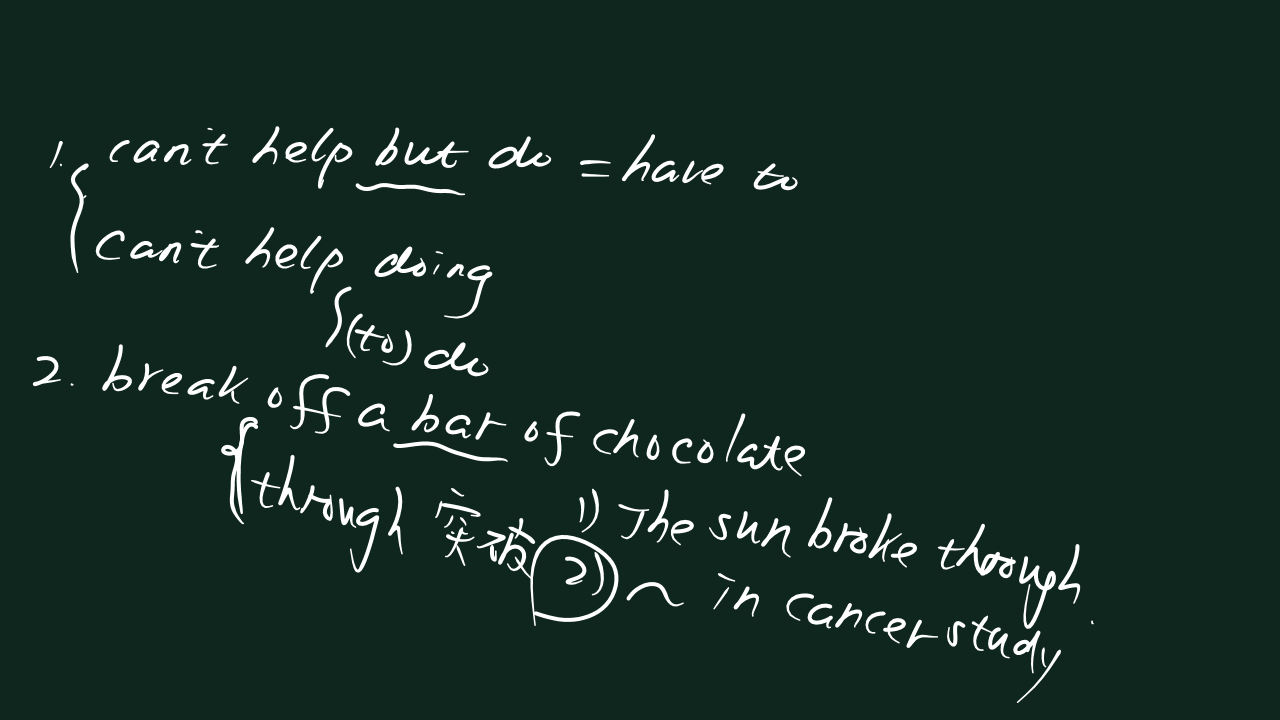 1. can't help but do = have to
can't help doing
(to) do
2. break off a bar of chocolate
through 突破 1) The sun broke through.
2) ~ in cancer study